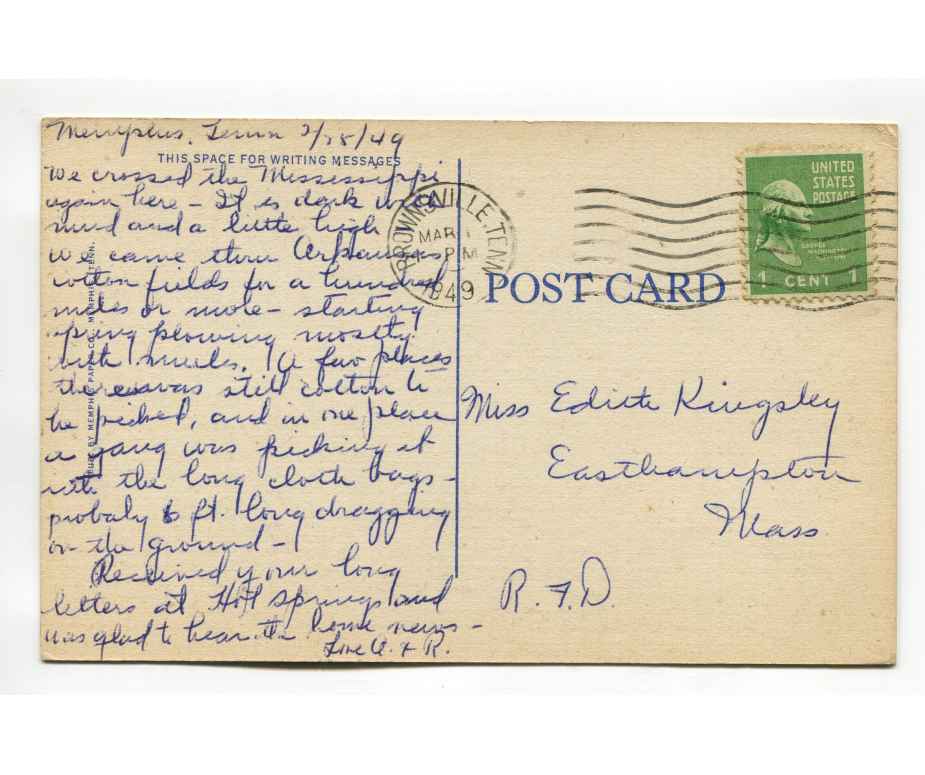 Memphis, Tenn 2/28/49
THIS SPACE FOR WRITING MESSAGES
We crossed the Mississippi
again here – It is dark with
mud and a little high
We came thru Arkansas
cotton fields for a hundred
miles or more – starting
spring plowing mostly
with mules. A few places
there was still cotton to
be picked, and in one place
a gang was picking it
with the long cloth bags –
probaly 6 ft. long dragging
on the ground –
Received your long
letters at Hot Springs and
was glad to hear the home news –
Love & R.
MEMPHIS PAPER CO., MEMPHIS, TENN.
BROWNSVILLE, TENN.
MAR 1
PM
1949
UNITED
STATES
POSTAGE
1 CENT 1
POST CARD
Miss Edith Kingsley
Easthampton
Mass.
R.F.D.